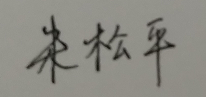 朱松平